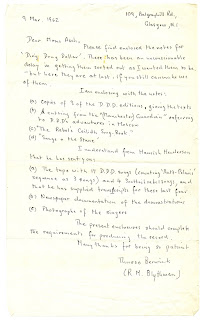 3 Mar. 1962
109, Balgrayhill Rd,
Glasgow, N.1
Dear Moses Asch,
Please find enclosed the notes for
'Ding Dong Dollar'. There has been an unconscionable
delay in getting them sorted out as I wanted them to be
- but here they are at last, if you still can make use
of them.
I am enclosing with the notes:
(a) Copies of 3 of the D.D.D. editions, giving the texts
(b) A cutting from the "Manchester Guardian" referring
to D.D.D's adventures in Makeon
(c) "The Rebels Ceilidh Song Book"
(d) "Songs o the Stane"
I understand from Hamish Henderson
that he has sent you:
(a) The tape with 15 D.D.D. songs (counting "Anti-Polaris"
sequence as 3 songs) and 4 songs,
and that he has supplied for these last four
(b) Newspaper documentation of the demonstrations
(c) Photographs of the singers
The present enclosures should complete
the requirements for producing the record.
Many thanks for being so patient
Thurso Berwick
(R. M. Blythman)